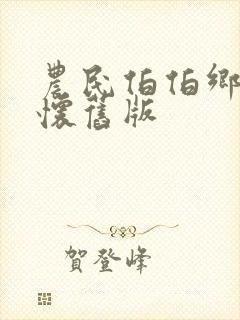 農民伯伯鄉
懷舊版
賀登峰